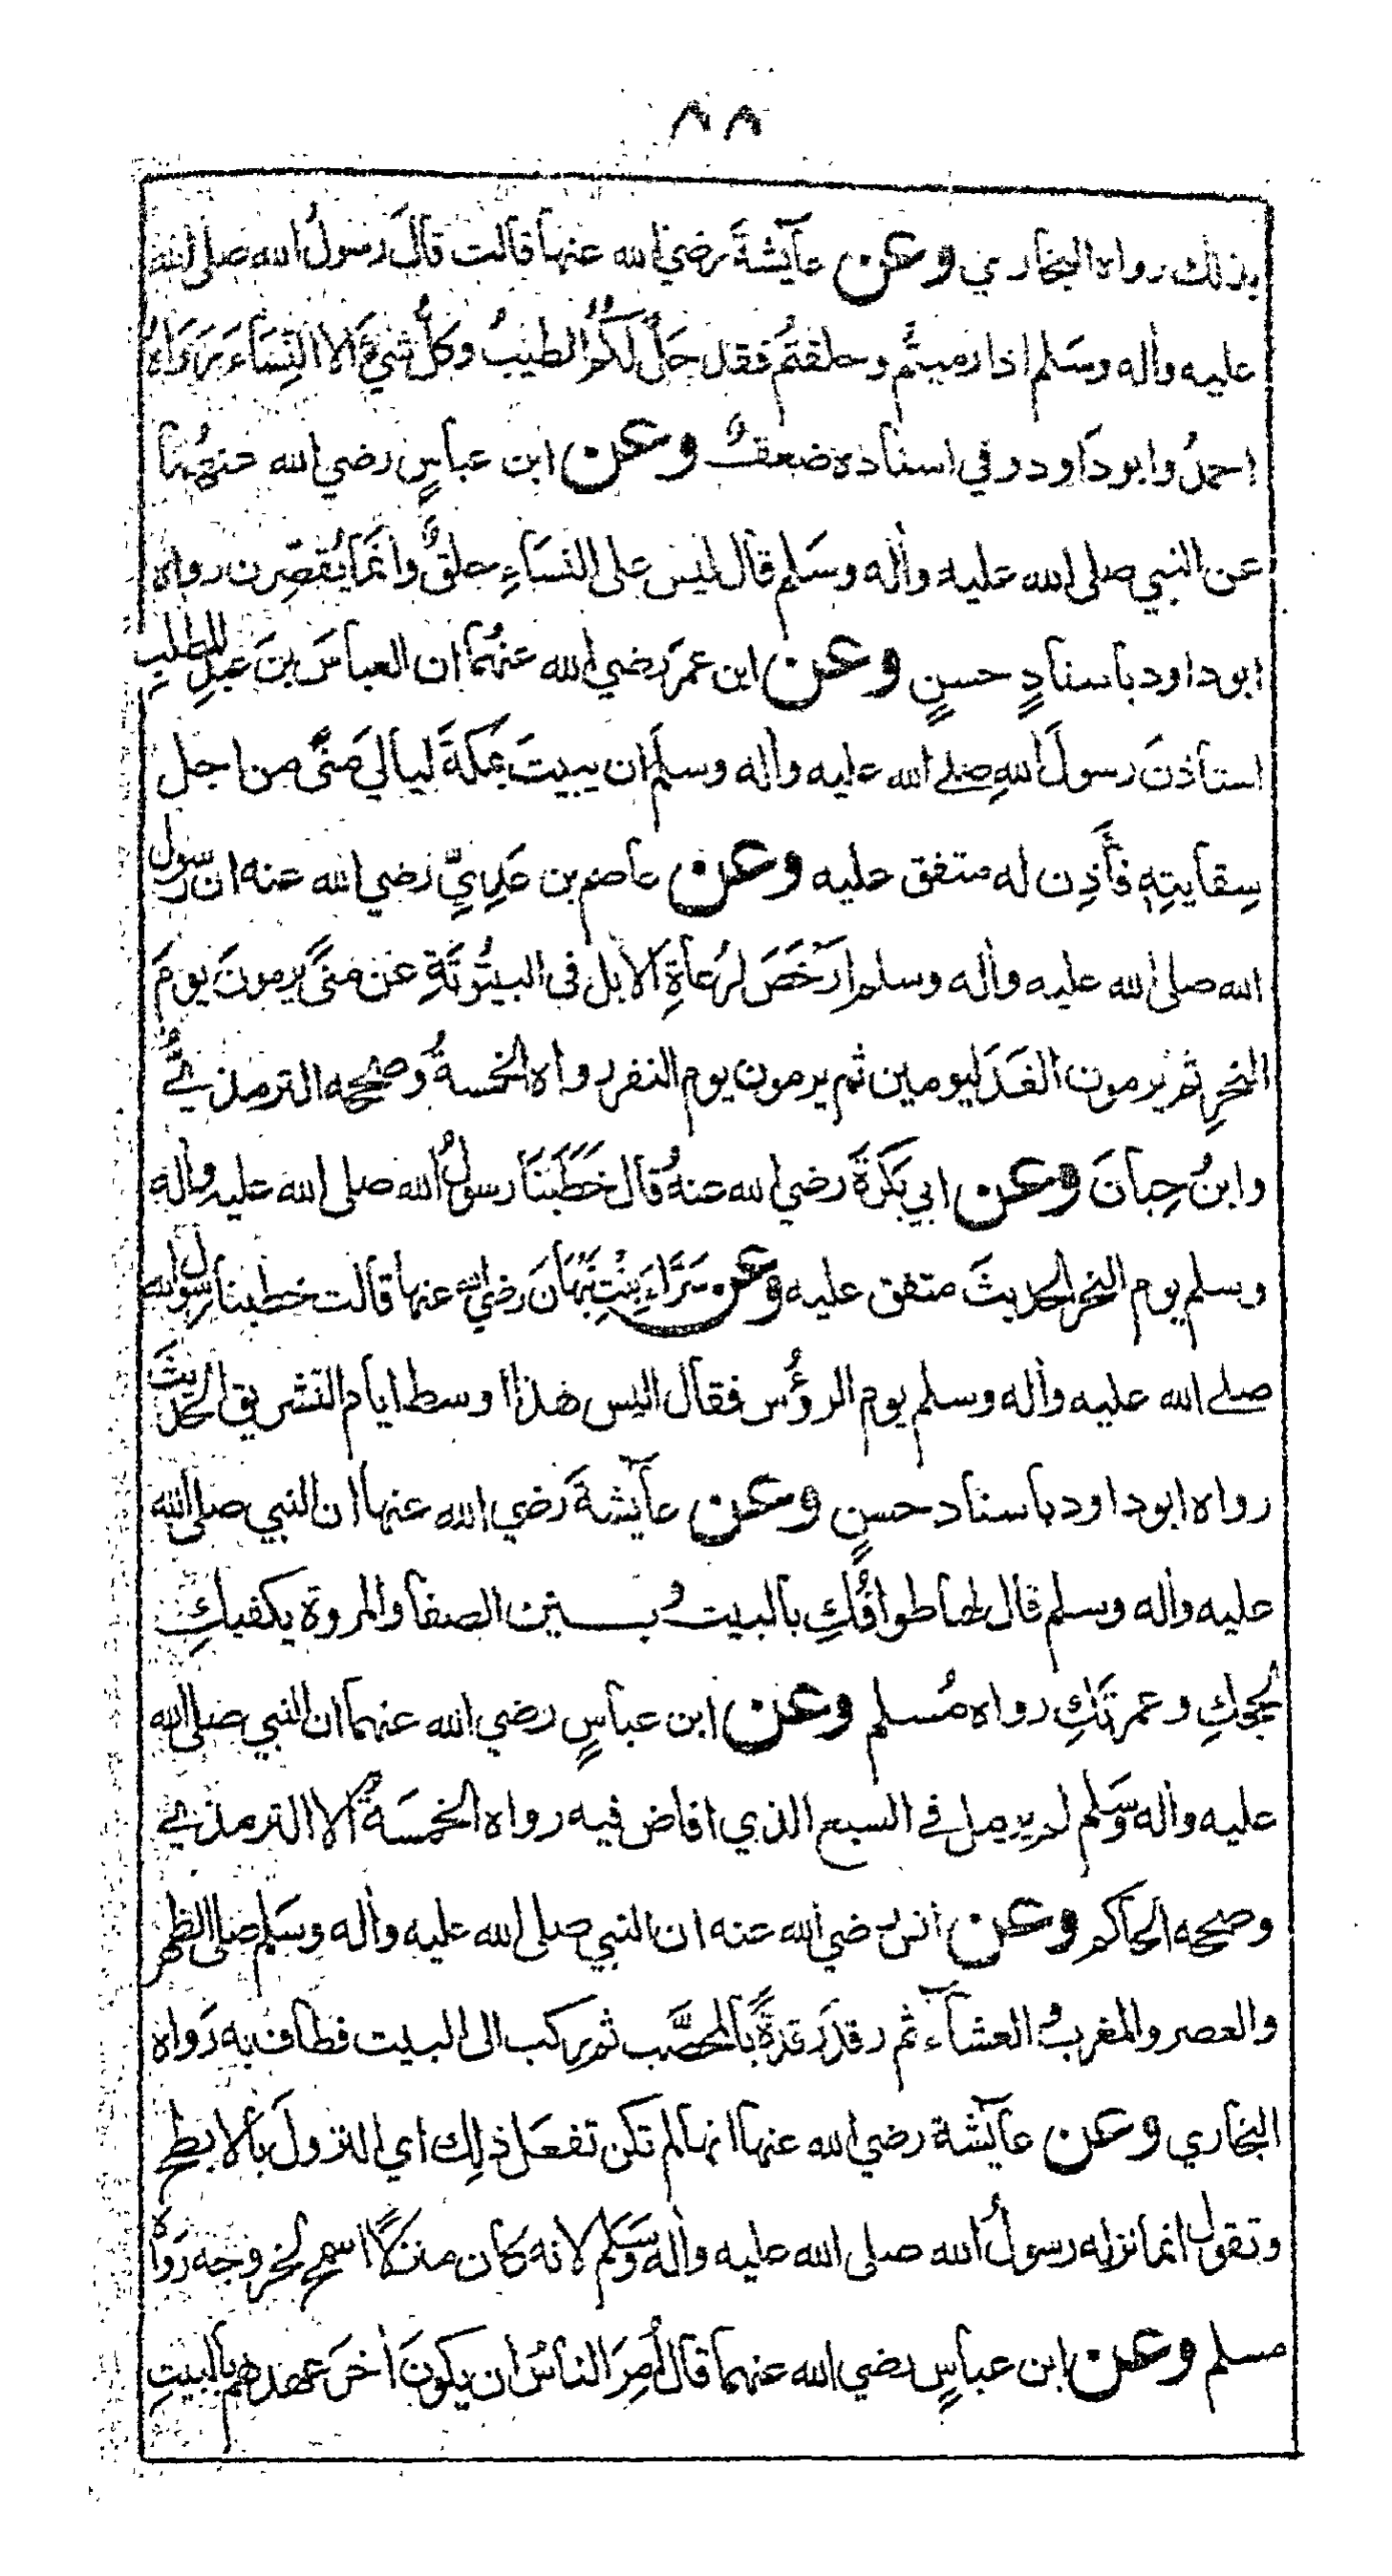 ٨٨
بذلك رواه البخاري وعن عآيشةَ رضي الله عنها قالت قالَ رسولُ الله صلى الله
عليه واله وسَلم اذا رميتُم وحلقتُم فقد حَلَّ لكُمُ الطيبُ وكلُّ شيءٍ الا النِّسَاءَ رَوَاهُ
احمدُ وابو دَاود وفي اسناده ضعفٌ وعن ابن عباسٍ رضي الله عنهُما
عن النبي صلى الله عليه واٰله وسَلم قال ليس على النسَاءِ حلقٌ وانما يُقصِّرن رواه
ابوداود باسنادٍ حسنٍ وعن ابن عمرَ رضي الله عنهُما ان العباسَ بنَ عبدِ المطلبِ
استاذنَ رسولَ اللهِ صلے الله عليه واٰله وسلَّم ان يبيتَ بمكةَ ليالي مَنًى من اجل
سِقايتِهٖ فأَذِن له متفق عليه وعن عاصم بن عَدِيٍّ رضي الله عنه ان رسول
الله صلى الله عليه واٰله وسلم ارَخَصَ لرُعاةِ الابل فى البيتُوتَةِ عَن منًى يرمونَ يومَ
النحرِ ثم يرمون الغدَ ليومين ثم يرمون يوم النفر رواه الخمسةُ وصححه الترمذيُّ
وابنُ حِبانَ وعن ابي بَكرَةَ رضي الله عنهُ قال خَطَبَنَا رسولُ الله صلى الله عليه واٰله
وسلم يوم النحر الحديثَ متفق عليه وعن سَرَّاءَ بِنْتِ نَبْهَانَ رضي الله عنها قالت خطبنا رسول الله
صلے الله عليه واٰله وسلم يوم الرؤُس فقال اليس هذا اوسط ايام التشريق الحديثَ
رواه ابوداود باسناد حسنٍ وعن عآيشةَ رضي الله عنها ان النبي صلى الله
عليه واٰله وسلم قال لها طوافُكِ بالبيت وبــــين الصفا والمروة يكفيكِ
لحجكِ وعمرتَكِ رواه مُسلم وعن ابن عباسٍ رضي الله عنهما ان النبي صلى الله
عليه واٰله وسَلم لم يرمل في السبع الذي افاض فيه رواه الخمسَةُ الا الترمذي
وصححه الحاكم وعن انس رضي الله عنه ان النبي صلى الله عليه واٰله وسَلم صلى الظهر
والعصر والمغربَ والعشآء ثم رقدَ رقدةً بالمحصَّب ثم ركب الى البيت فطاف به رَواه
البخاري وعن عآيشة رضي الله عنها انها لم تكن تفعَل ذلك اي النزولَ بالابطح
وتقول انما نزله رسولُ الله صلى الله عليه واٰله وسَلم لانه كان منزلًا اسمح لخروجه رَواه
مسلم وعن ابن عباسٍ رضي الله عنهما قال اُمِرَ الناسُ ان يكونَ اٰخرَ عهدهم بالبيتِ